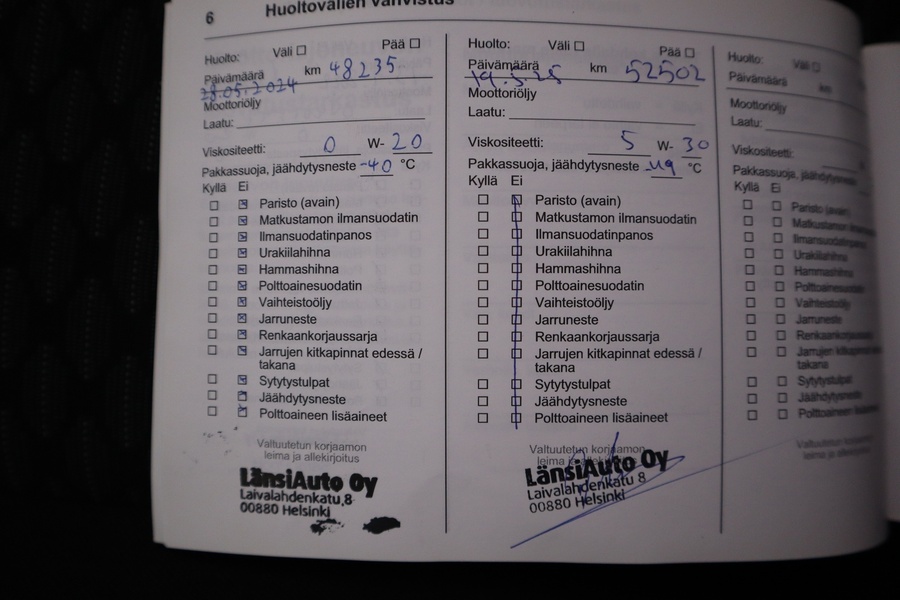 6 Huoltovälien vahvistus
Huolto: Väli ☐ Pää ☐
Päivämäärä km 48235
28.05.2024
Moottoriöljy
Laatu:
Viskositeetti: 0 W- 20
Pakkassuoja, jäähdytysneste -40 °C
Kyllä Ei
Paristo (avain)
Matkustamon ilmansuodatin
Ilmansuodatinpanos
Urakiilahihna
Hammashihna
Polttoainesuodatin
Vaihteistoöljy
Jarruneste
Renkaankorjaussarja
Jarrujen kitkapinnat edessä /
takana
Sytytystulpat
Jäähdytysneste
Polttoaineen lisäaineet
Valtuutetun korjaamon
leima ja allekirjoitus
LänsiAuto Oy
Laivalahdenkatu 8
00880 Helsinki
Huolto: Väli ☐ Pää ☐
Päivämäärä km 52502
19.5.25
Moottoriöljy
Laatu:
Viskositeetti: 5 W- 30
Pakkassuoja, jäähdytysneste °C
Kyllä Ei
Paristo (avain)
Matkustamon ilmansuodatin
Ilmansuodatinpanos
Urakiilahihna
Hammashihna
Polttoainesuodatin
Vaihteistoöljy
Jarruneste
Renkaankorjaussarja
Jarrujen kitkapinnat edessä /
takana
Sytytystulpat
Jäähdytysneste
Polttoaineen lisäaineet
Valtuutetun korjaamon
leima ja allekirjoitus
LänsiAuto Oy
Laivalahdenkatu 8
00880 Helsinki
Huolto: Väli ☐
Päivämäärä km
Moottoriöljy
Laatu:
Viskositeetti:
Pakkassuoja, jäähdytysneste
Kyllä Ei
Paristo (avain)
Matkustamon
Ilmansuodatinpanos
Urakiilahihna
Hammashihna
Polttoainesuodatin
Vaihteistoöljy
Jarruneste
Renkaankorjaussarja
Jarrujen kitkapinnat
takana
Sytytystulpat
Jäähdytysneste
Polttoaineen
Valtuutetun korjaamon
leima ja allekirjoitus